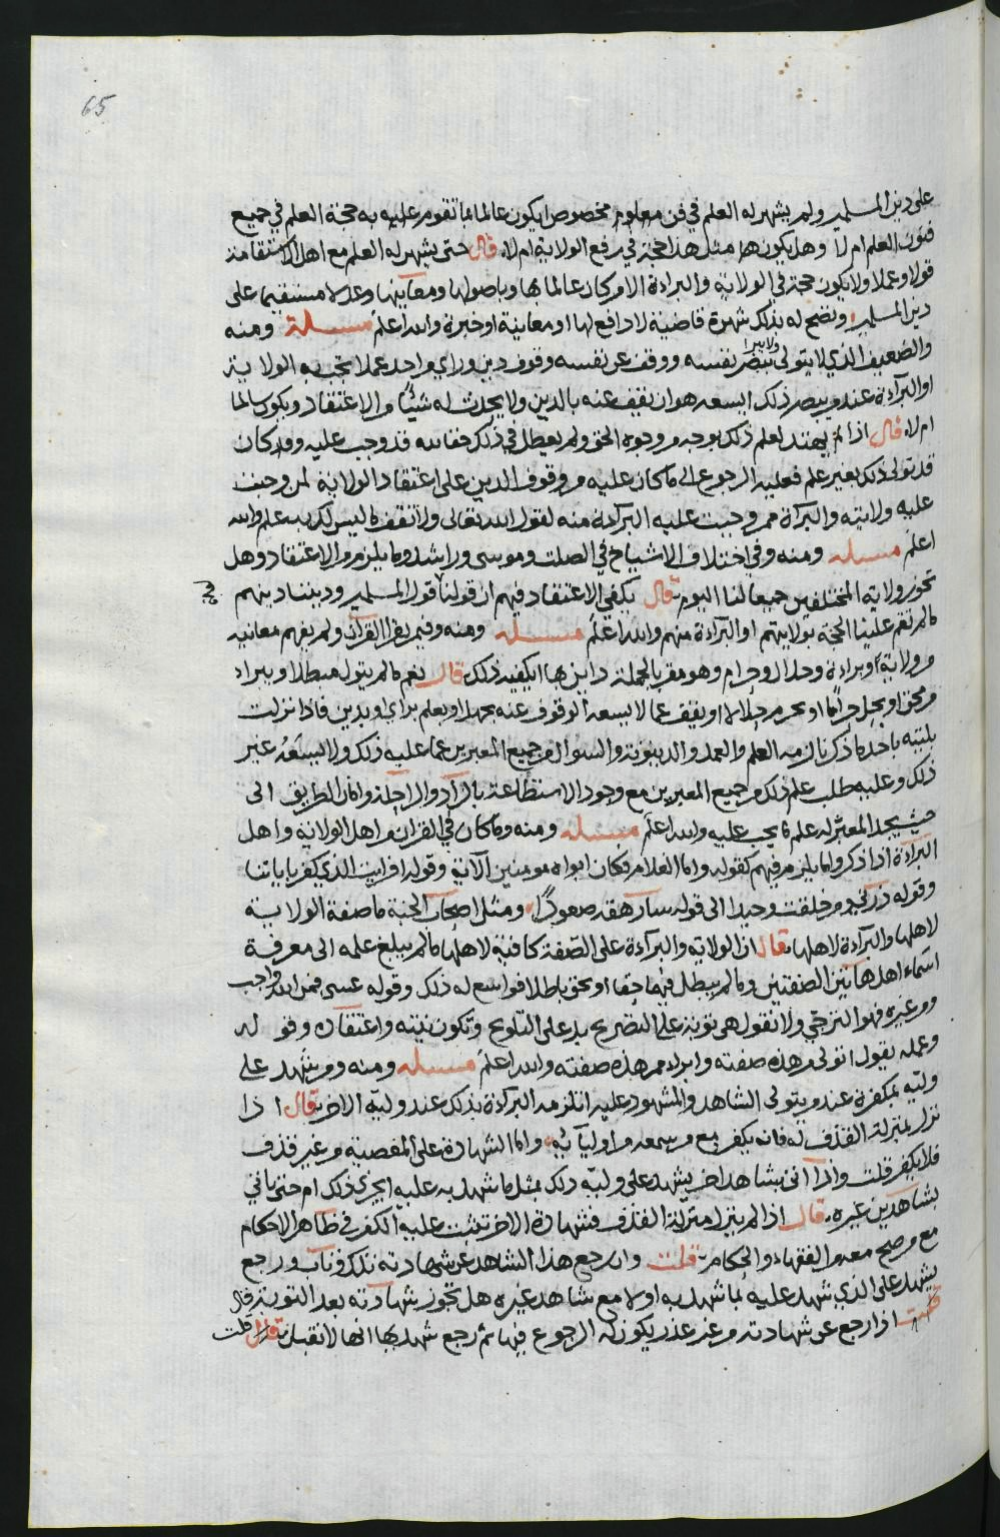 65
على دين المسلمين ولم يشهر له العلم في فن معلوم مخصوص ايكون عالما بما تقوم عليه به حجة العلم في جميع
فنون العلم ام لا وهل يكون هذا مثل هذا حجة في رفع الولاية ام لا قال حتى يشهر له العلم مع اهل الاستقامة
قولا وعملا ولا يكون حجة في الولاية والبراءة الا من كان عالما بها وباصولها ومعانيها وعدلا مستقيما على
دين المسلمين وتصح له بذلك شهرة قاضية لا دافع لها او معاينة او خبرة والله اعلم مسئلة ومنه
والضعيف الذي لا يتولى ببصر نفسه ولا يبرا ووقف عن نفسه وقوف دين وراي واحد عملا تجب به الولاية
او البرآءة عند من يبصر ذلك ايسعه هو ان يقف عنه بالدين ولا يحدث له شيئا من الاعتقاد ويكون سالما
ام لا قال اذا لم يهتد لعلم ذلك بوجه من وجوه الحق ولم يعطل في ذلك حقا لله قد وجب عليه وقد كان
قد تولى ذلك بغير علم فعليه الرجوع الى ما كان عليه من وقوف الدين على اعتقاد الولاية لمن وجبت
عليه ولايته والبرآة ممن وجبت عليه البرآءة منه لقول الله تعالى ولا تقف ما ليس لك به علم والله
اعلم مسئله ومنه وفي اختلاف الاشياخ في الصلت وموسى وراشد وما يلزم من الاعتقاد وهل
تجوز ولاية المختلفين جميعا لنا اليوم قال يكفي الاعتقاد فيهم ان قولنا قول المسلمين وديننا دينهم
ما لم تقم علينا الحجة بولايتهم او البرآءة منهم والله اعلم مسئله ومنه وفيمن يقرا القرآن ولم يفهم معانيه
من ولاية او براءة وحلال وحرام وهو مقر بالجملة داين بها ايكفيه ذلك قال نعم ما لم يتول مبطلا او يبراء
من محق او يحل حراما او يحرم حلالا او يقف عما لا يسعه الوقوف عنه بجهل او بعلم براي او بدين فاذا نزلت
بليته باحد ما ذكرنا لزمه العلم والعمل والدينونة والسوال من جميع المعبرين عما عليه ذلك ولا يسعه غير
ذلك وعليه طلب علم ذلك من جميع المعبرين مع وجود الاستطاعة بالزاد والراحلة وامان الطريق الى
حيث يجد المعبر له علم ما يجب عليه والله اعلم مسئله ومنه وما كان في القران من اهل الولاية واهل
البراءة اذا ذكروا ما يلزم فيهم كقوله واما الغلام فكان ابواه مومنين الآية وقوله افرايت الذي كفر باياتنا
وقوله ذرني ومن خلقت وحيدا الى قوله سارهقه صعودا ومثل اصحاب الجنة ما صفة الولاية
لاهلها والبرآءة لاهلها قال ان الولايه والبرآءة على الصفة كافية لاهلها ما لم يبلغ علمه الى معرفة
اسماء اهل هاتين الصفتين وما لم يبطل فيهما حقا او يحق باطلا فواسع له ذلك وقوله عسى فمن الله واجب
ومن غيره فهو الترجي ولا نقول هي توبة على التصريح بل على التلويح وتكون نيته واعتقاده وقوله
وعمله يقول اتولى من هذه صفته وابراء ممن هذه صفته والله اعلم مسئله ومنه ومن شهد على
وليه بمكفرة عند من يتولى الشاهد والمشهود عليه اتلزمه البرآءة بذلك عند وليه الاخر قال اذا
نزل بمنزلة القذف له فانه يكفر مع من سمعه من اوليآئه واما الشهادة على المعصية من غير قذف
فلا يكفر قلت واذا اتى بشاهد اخر يشهد على وليه ذلك بمثل ما شهد به عليه ايجزي ذلك ام حتى ياتي
بشاهدين غيره قال اذا لم ينزل منزلة القذف فشهادة الاخر تثبت عليه الكفر في ظاهر الاحكام
مع من صح معه من الفقهاء والحكام قلت وان رجع هذا الشاهد عن شهادته تلك وتاب ورجع
يشهد على الذي شهد عليه بما شهد به اولا مع شاهد غيره هل تجوز شهادته بعد التوبة قال
اذا رجع عن شهادته من غير عذر يكون له الرجوع فيها ثم رجع شهد بها انها لا تقبل قلت